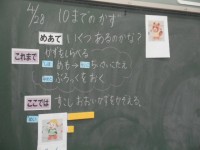 4/28 10までのかず
めあて いくつあるのかな?
これまで かずをしらべる
めも→ ちのいこたえ
ぶろっくをおく
ここでは すこしおおいかずをかぞえる。